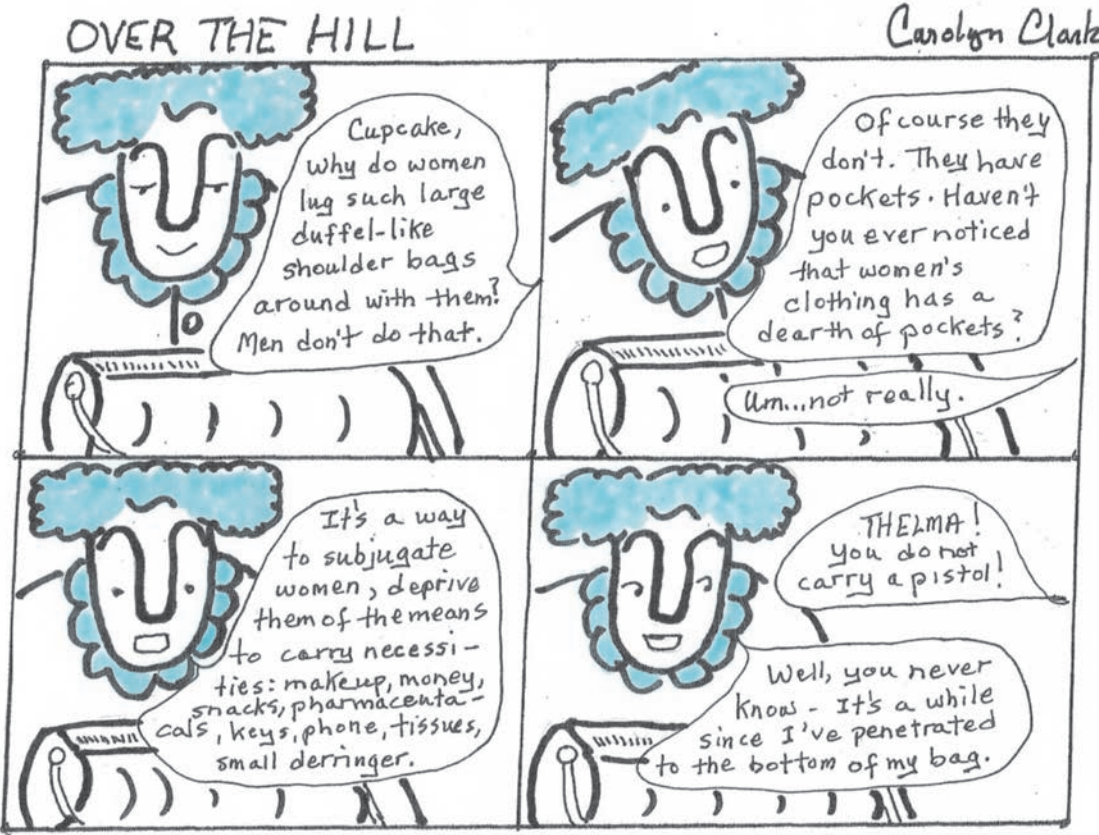 OVER THE HILL
Carolyn Clark
Cupcake,
why do women
lug such large
duffel-like
shoulder bags
around with them?
Men don't do that.
Of course they
don't. They have
pockets. Haven't
you ever noticed
that women's
clothing has a
dearth of pockets?
Um...not really.
It's a way
to subjugate
women, deprive
them of the means
to carry necessi-
ties: makeup, money,
snacks, pharmaceuta-
cals, keys, phone, tissues,
small derringer.
THELMA!
you do not
carry a pistol!
Well, you never
know - It's a while
since I've penetrated
to the bottom of my bag.